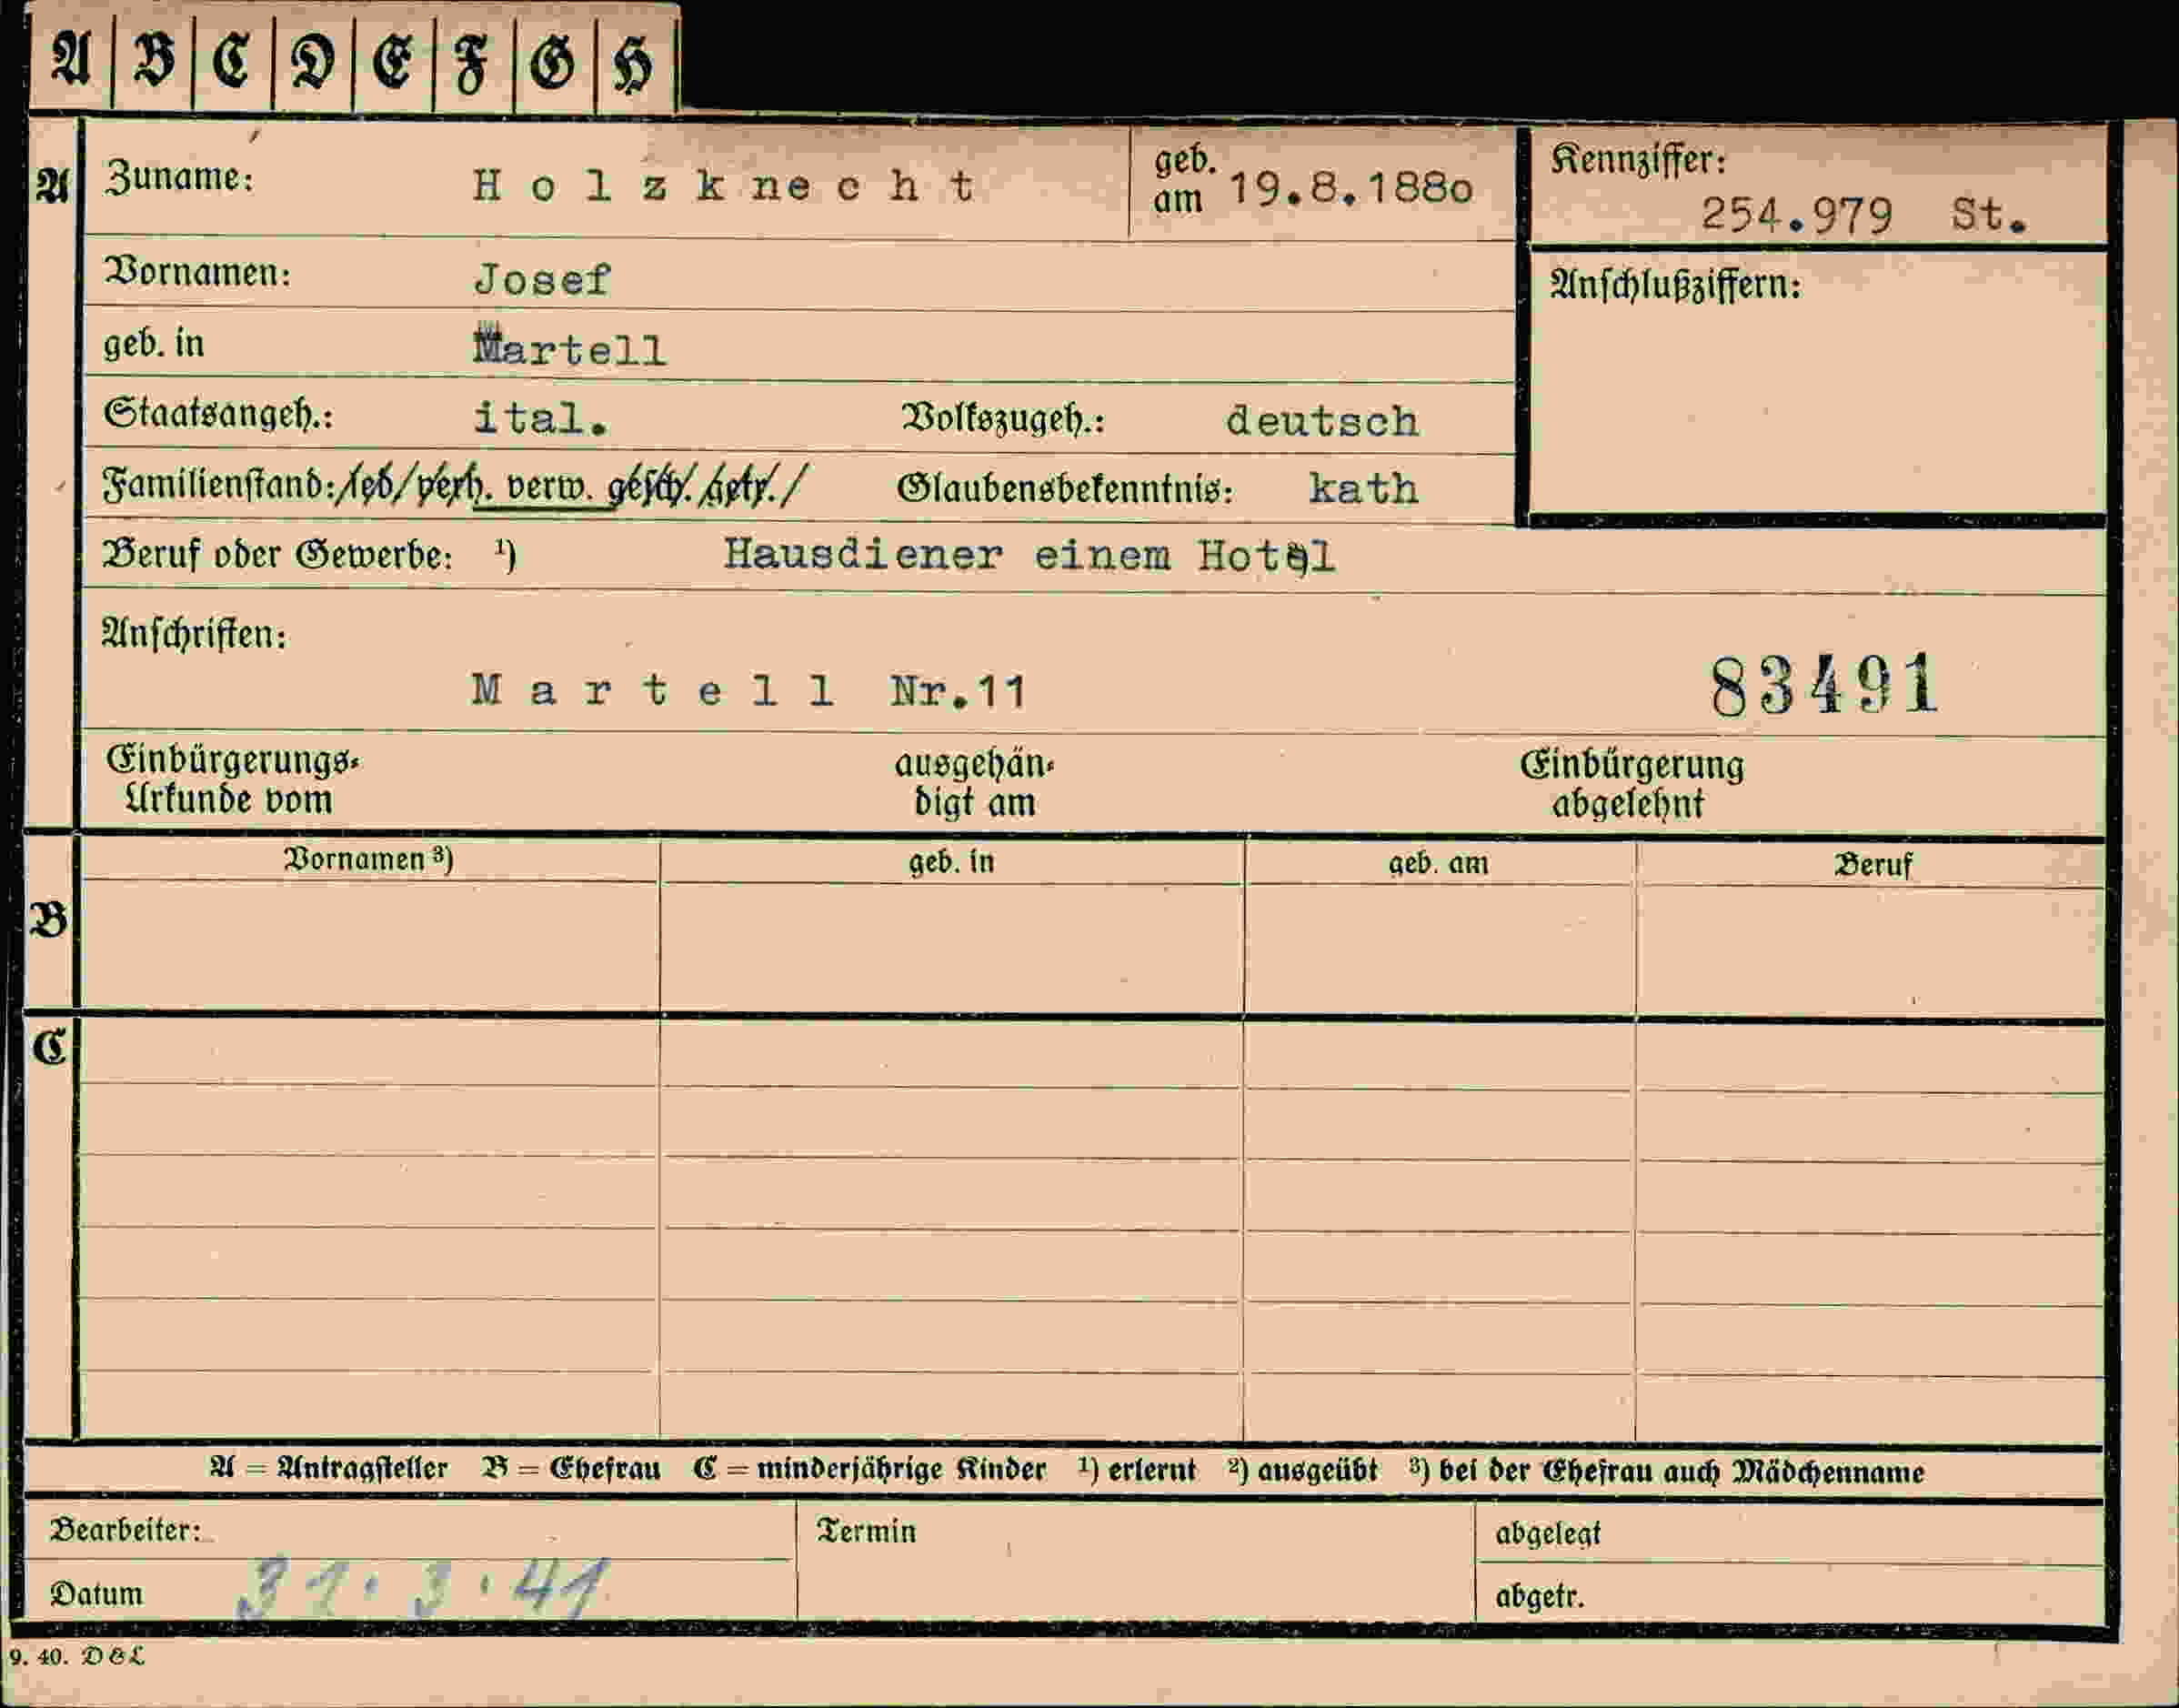 A B C D E F G H
A Zuname: Holzknecht geb. am 19.8.188o Kennziffer: 254.979 St.
Vornamen: Josef Anschlußziffern:
geb. in Martell
Staatsangeh.: ital. Volkszugeh.: deutsch
Familienstand: led. verh. verw. gesch. getr. Glaubensbekenntnis: kath
Beruf oder Gewerbe: ¹) Hausdiener einem Hotel
Anschriften:
Martell Nr.11 83491
Einbürgerungs- ausgehän- Einbürgerung
Urkunde vom digt am abgelehnt
Vornamen ³) geb. in geb. am Beruf
B
C
A = Antragsteller B = Ehefrau C = minderjährige Kinder ¹) erlernt ²) ausgeübt ³) bei der Ehefrau auch Mädchenname
Bearbeiter: Termin abgelegt
Datum 31.3.41 abgetr.
9. 40. D&L